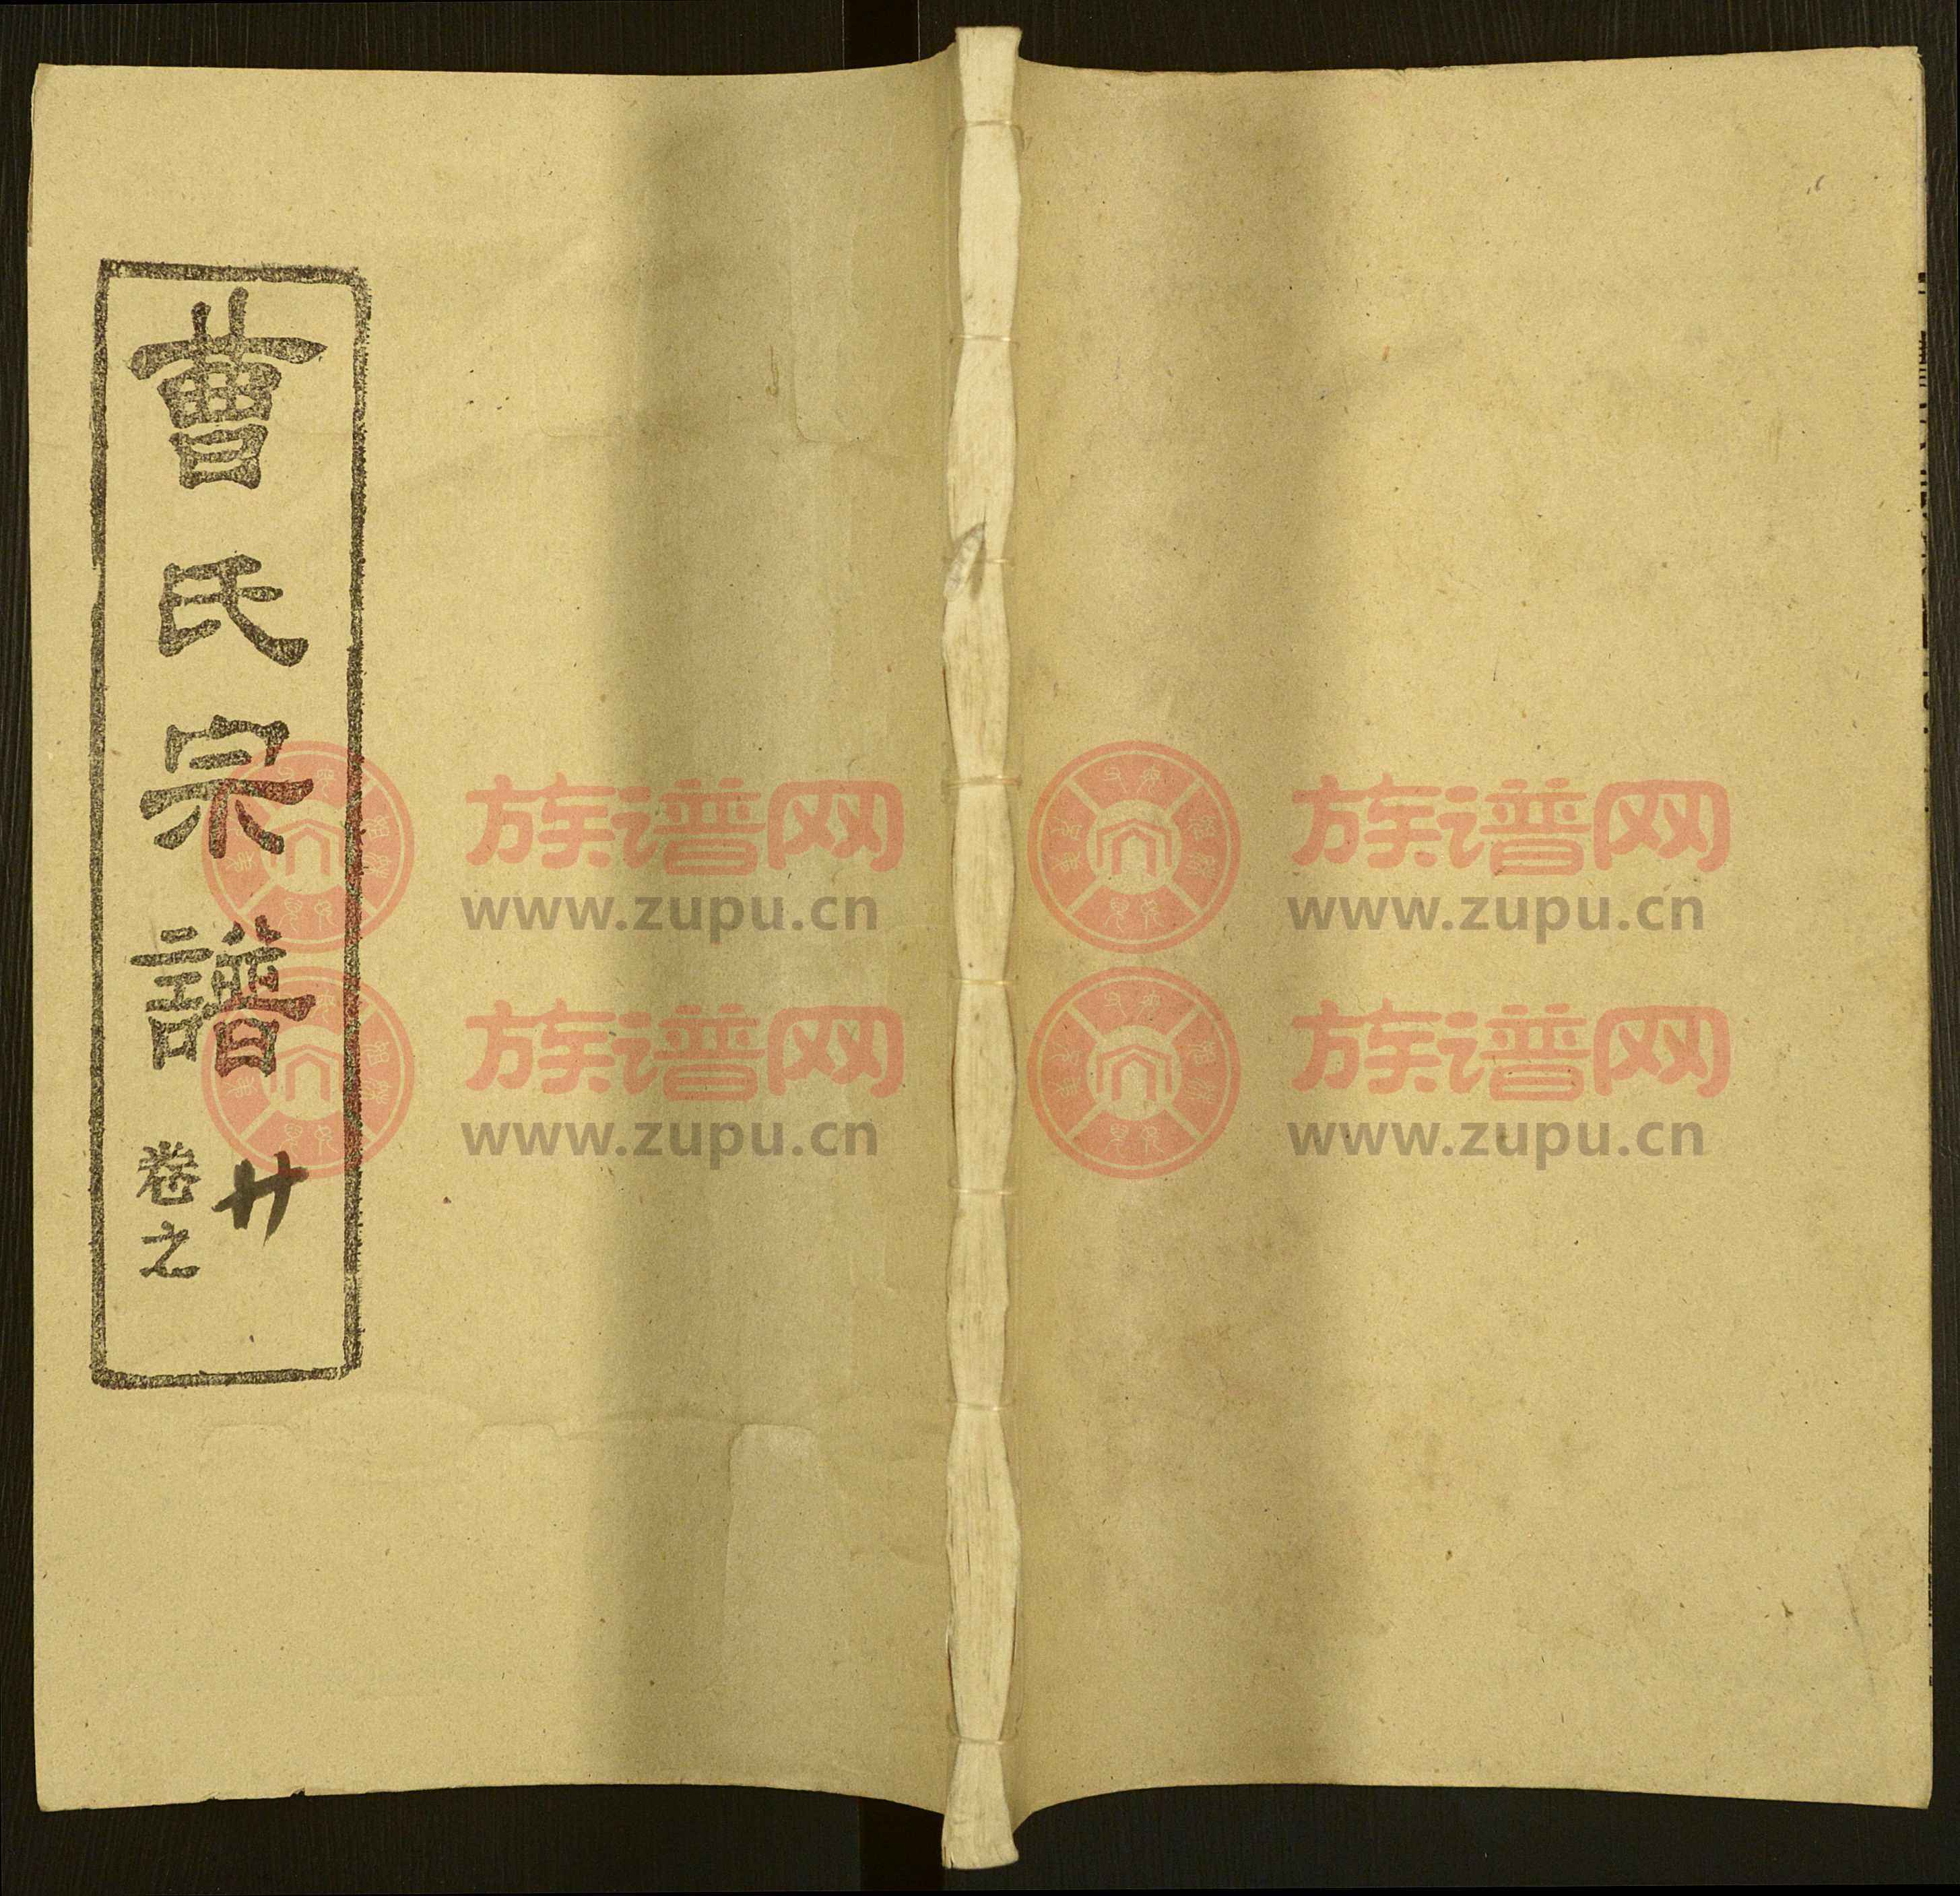 曹氏宗譜
卷之
廿
族谱网
www.zupu.cn
族谱网
www.zupu.cn
族谱网
www.zupu.cn
族谱网
www.zupu.cn